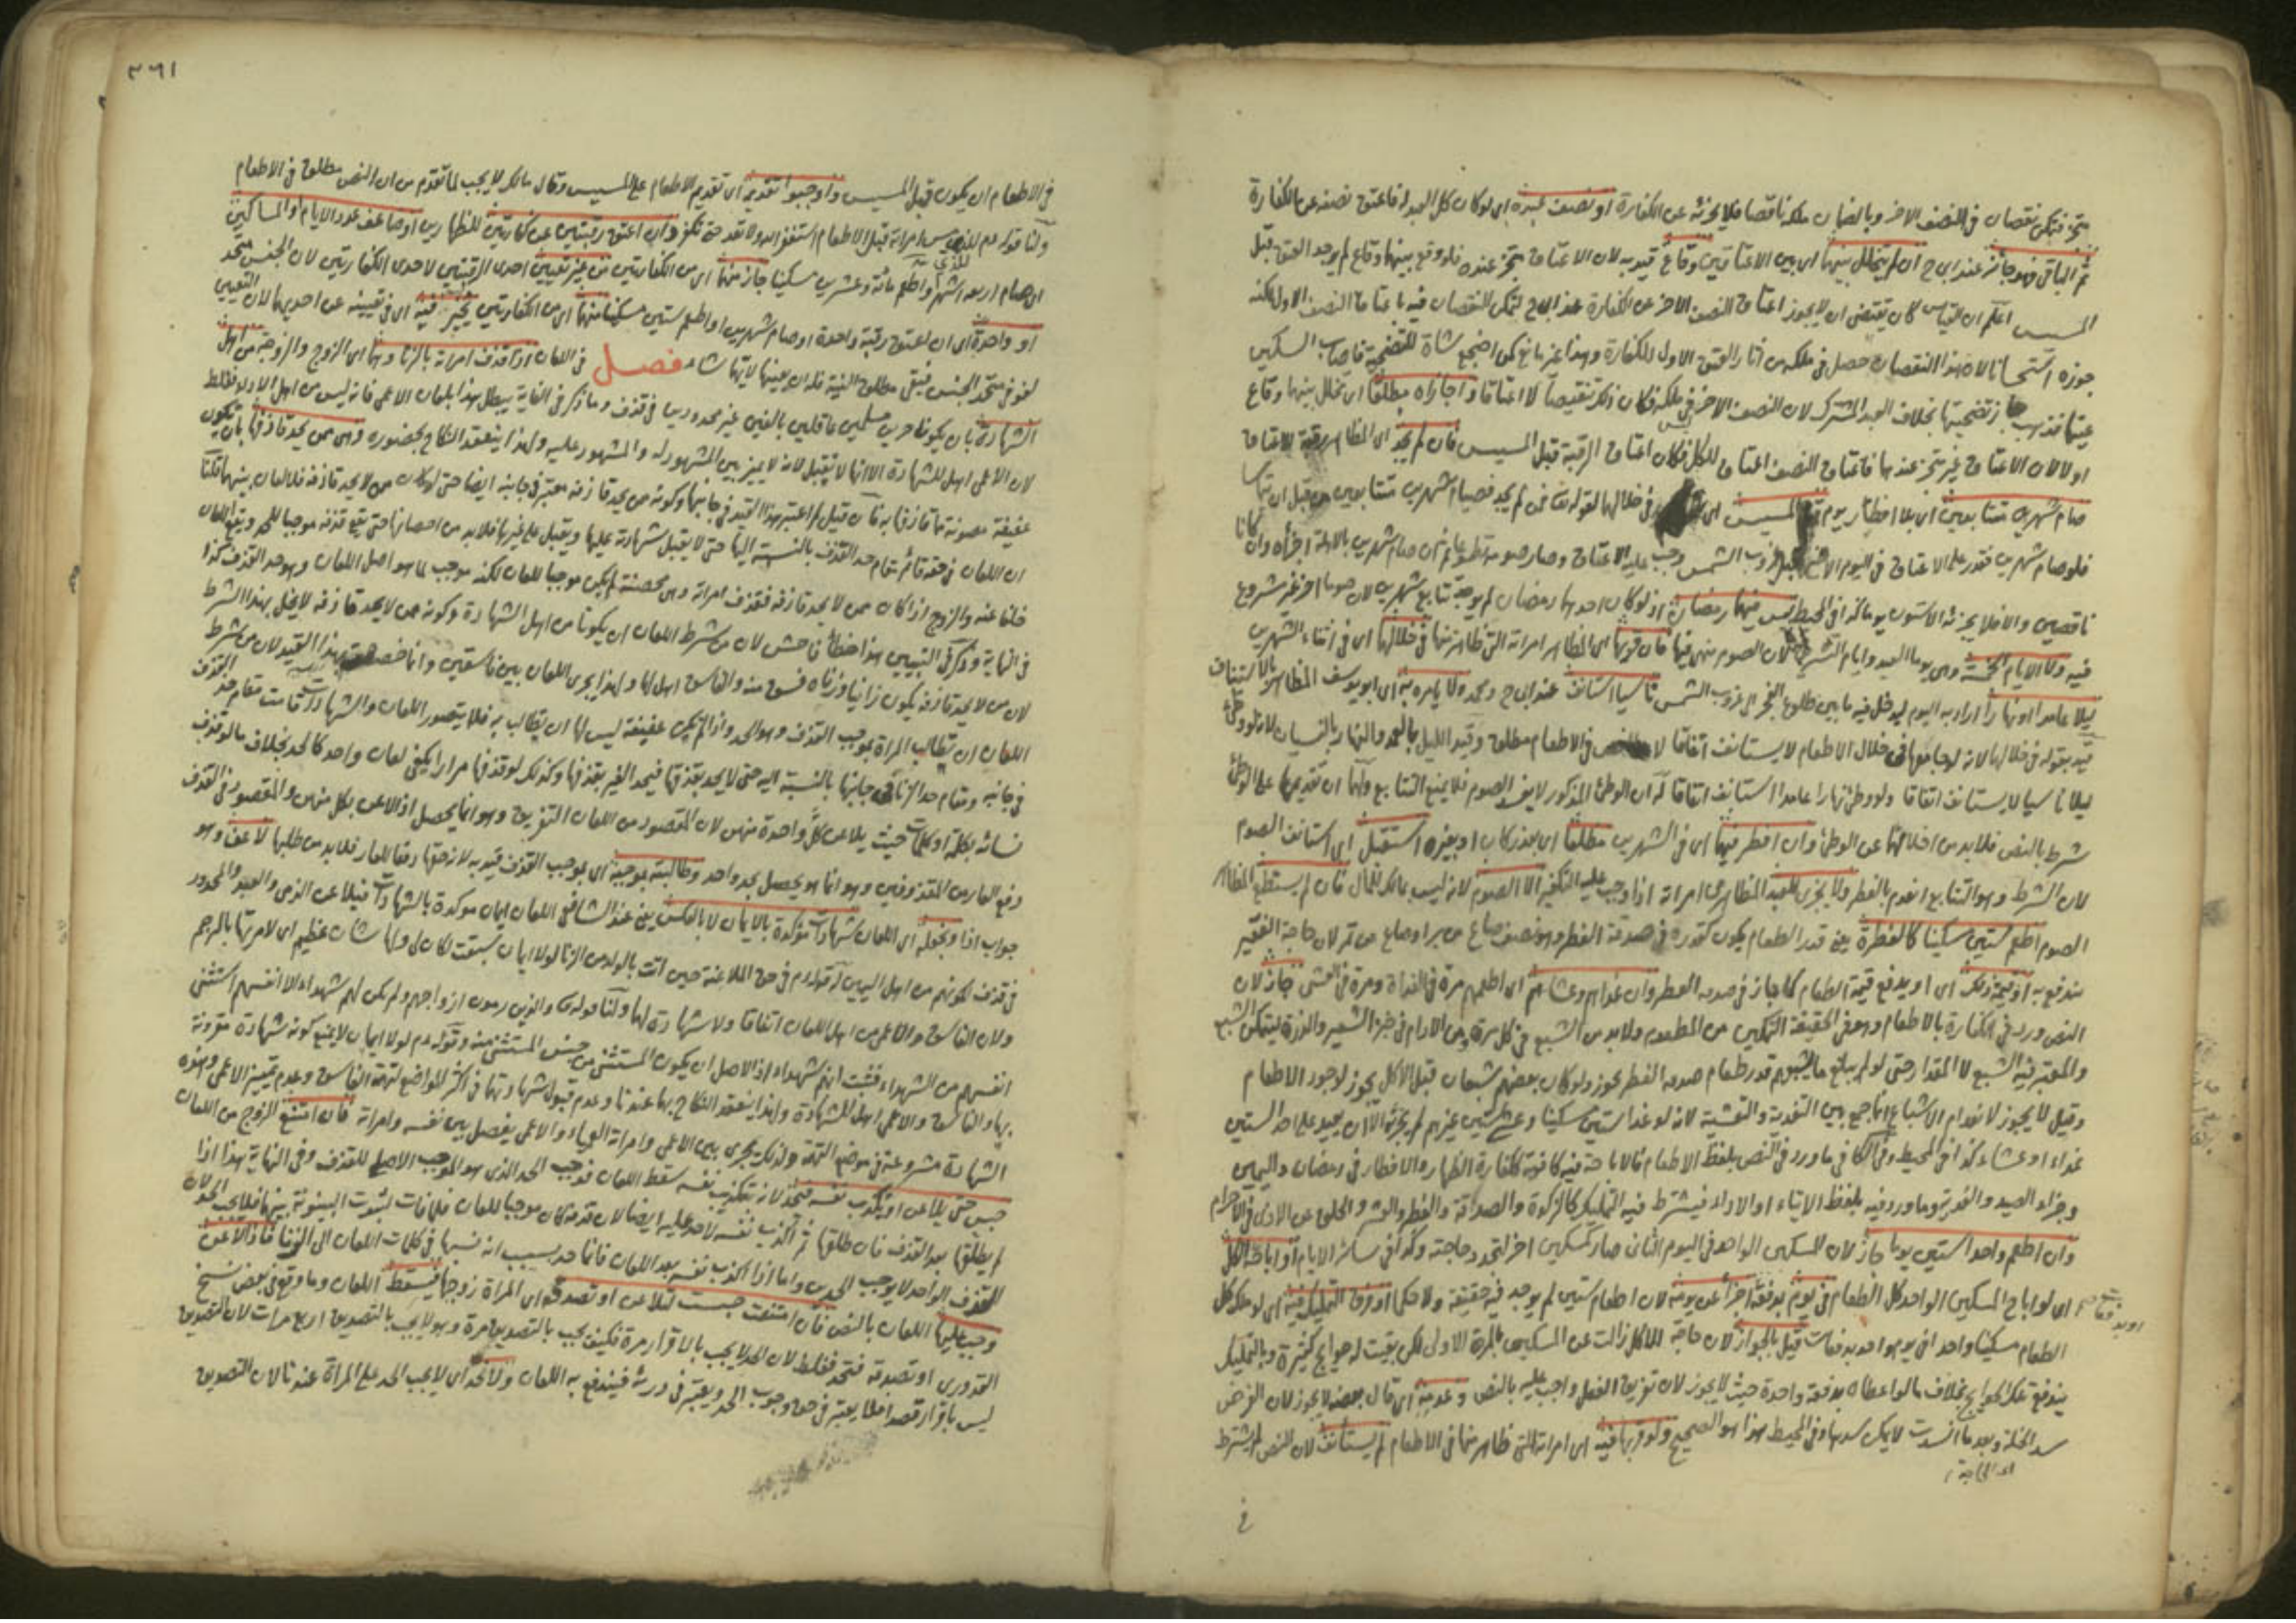 متجز فتمكن نقصان في النصف الاخر وبالضمان ملكه ناقصا فلا يجزئه عن الكفارة او نصف عبده اي لو كان كل العبد له فاعتق نصفه عن الكفارة
ثم الباقي فهو جائز عند ابي ح ان لم يتخلل بينهما اي بين الاعتاقين وقاع قيد به لان الاعتاق متجز عنده فلو وقع بينهما وقاع لم يوجد العتق قبل
المسيس اعلم ان القياس كان يقتضي ان لا يجوز اعتاق النصف الاخر عن الكفارة عند ابي ح لتمكن النقصان فيه باعتاق النصف الاول لكنه
جوزه استحسانا لان هذا النقصان حصل في ملكه من اثار العتق الاول للكفارة وهذا غير مانع كمن اضجع شاة للتضحية فاصاب السكين
عينها فذهب جاز تضحيتها بخلاف العبد المشترك لان النصف الاخر في ملكه فكان ذلك تنقيصا لا اعتاقا واجازاه مطلقا اي تخلل بينهما وقاع
او لا لان الاعتاق غير متجز عندهما فاعتاق النصف اعتاق للكل فكان اعتاق الرقبة قبل المسيس فان لم يجد اي المظاهر رقبة للاعتاق
صام شهرين متتابعين اي بلا افطار يوم قبل المسيس اي في خلالها لقوله تعالى فمن لم يجد فصيام شهرين متتابعين من قبل ان يتماسا
فلو صام شهرين فقدر على الاعتاق في اليوم الاخير قبل غروب الشمس وجب عليه الاعتاق وصار صومه تطوعا ثم ان صام شهرين بالاهلة اجزأه وان كانا
ناقصين والا فلا يجزئه الا ستون يوما كذا في المحيط ليس فيهما رمضان اذ لو كان احدهما رمضان لم يوجد تتابع شهرين لان صوما اخر غير مشروع
فيه ولا الايام الخمسة وهي يوما العيد وايام التشريق لان الصوم منهي فيها فان قربها اي المظاهر امراته التي ظاهر منها في خلالها اي في اثناء الشهرين
ليلا عامدا او نهارا اراد به اليوم ليدخل فيه ما بين طلوع الفجر الى غروب الشمس ناسيا استانف عند ابي ح ومحمد ولا يامره به اي ابو يوسف المظاهر بالاستئناف
قيد بقوله في خلالها لانه لو جامعها في خلال الاطعام لا يستانف اتفاقا لان النص في الاطعام مطلق وقيد الليل بالعمد والنهار بالنسيان لانه لو وطئ
ليلا ناسيا لا يستانف اتفاقا ولو وطئ نهارا عامدا استانف اتفاقا له ان الوطئ المذكور لا يفسد الصوم فلا يمنع التتابع ولهما ان تقديمها على الوطئ
شرط بالنص فلا بد من اخلائها عن الوطئ وان افطر فيها اي في الشهرين مطلقا اي بعذر كان او بغيره استقبل اي استانف الصوم
لان الشرط وهو التتابع انعدم بالفطر ولا يجزي للعبد المظاهر من امراته اذا وجب عليه التكفير الا الصوم لانه ليس بمالك للمال فان لم يستطع المظاهر
الصوم اطعم ستين مسكينا كالفطرة يعني قدر الطعام يكون كقدره في صدقة الفطر وهو نصف صاع من بر او صاع من تمر لان حاجة الفقير
تندفع به او قيمة ذلك اي او يدفع قيمة الطعام كما جاز في صدقة الفطر وان غداهم وعشاهم اي اطعمهم مرة في الغداة ومرة في العشي جاز لان
النص ورد في الكفارة بالاطعام وهو في الحقيقة التمكين من المطعوم ولا بد من الشبع في كل مرة ومن الادام في خبز الشعير والذرة ليتمكن الشبع
والمعتبر فيه الشبع لا المقدار حتى لو لم يبلغ ما يشبعهم قدر طعام صدقة الفطر يجوز ولو كان بعضهم شبعان قبل الاكل يجوز لوجود الاطعام
وقيل لا يجوز لانعدام الاشباع انما جمع بين التغدية والتعشية لانه لو غدا ستين مسكينا وعشى ستين غيرهم لم يجزه الا ان يعيد على احد الستين
غداء او عشاء كذا في المحيط وفي الكافي ما ورد في النص بلفظ الاطعام فالاباحة فيه كافية ككفارة الظهار والافطار في رمضان واليمين
وجزاء الصيد والفدية وما ورد فيه بلفظ الايتاء او الاداء فيشترط فيه التمليك كالزكوة والصدقة والفطر والعشر والحلق عن الاذى في الاحرام
وان اطعم واحدا ستين يوما جاز لان المسكين الواحد في اليوم الثاني صار كمسكين اخر لتجدد حاجته وكذا في سائر الايام او اباحه الكل
اي لو اباح المسكين الواحد كل الطعام في يوم بدفعة اجزأ عن يومه لان اطعام ستين لم يوجد فيه حقيقة ولا حكما او فرق التمليك فيه اي لو ملك كل
او بدفعات صح
الطعام مسكينا واحدا في يوم واحد بدفعات قيل بالجواز لان حاجة الاكل زالت عن المسكين بالمرة الاولى لكن بقيت له حوائج كثيرة وبالتمليك
يندفع تلك الحوائج بخلاف ما لو اعطاه بدفعة واحدة حيث لا يجوز لان تفريق الفعل واجب عليه بالنص وعدمه اي قال بعضهم لا يجوز لان الغرض
سد الخلة وبعد ما انسدت لا يمكن سدها وفي المحيط هذا هو الصحيح ولو قربها فيه اي امراته التي ظاهر منها في الاطعام لم يستانف لان النص لم يشترط
اي الحاجة
في
٣٦١
في الاطعام ان يكون قبل المسيس واوجبوا تقديمه اي تقديم الاطعام على المسيس وقال مالك لا يجب لما تقدم من ان النص مطلق في الاطعام
ولنا قوله عم للذي مس امراته قبل الاطعام استغفر الله ولا تعد حتى تكفر وان اعتق رقبتين عن كفارتين للظهارين او ضاعف عدد الايام او المساكين
اي صام اربعة اشهر او اطعم مائة وعشرين مسكينا جاز عنهما اي من الكفارتين من غير تعيين احدى الرقبتين لاحدى الكفارتين لان الجنس متحد
او واحدة اي ان اعتق رقبة واحدة او صام شهرين او اطعم ستين مسكينا عنهما اي من الكفارتين يخير فيه اي في تعيينه عن احديهما لان التعيين
لغو في متحد الجنس فبقي مطلق النية فله ان يعينها لايتهما شاء فصل في اللعان اذا قذف امراته بالزنا وهما اي الزوج والزوجة من اهل
الشهادة بان يكونا حرين مسلمين عاقلين بالغين غير محدودين في قذف وما ذكر في الغاية يبطل هذا بلعان الاعمى فانه ليس من اهل الاداء غلط
لان الاعمى اهل للشهادة الا انها لا تقبل لانه لا يميز بين المشهود له والمشهود عليه ولهذا ينعقد النكاح بحضوره وهي ممن يحد قاذفها بان تكون
عفيفة مصونة عما قاذفها به فان قيل لم اعتبر هذا القيد في جانبها وكونه ممن يحد قاذفه معتبر في جانبه ايضا حتى لو كان ممن لا يحد قاذفه فلا لعان بينهما قلنا
ان اللعان في حقه قائم مقام حد القذف بالنسبة اليها حتى لا يقبل شهادته عليها ويقبل على غيرها فلا بد من احصانها حتى يقع قذفه موجبا للحد ويقع اللعان
خلفا عنه والزوج اذا كان ممن لا يحد قاذفه فقذف امراته وهي محصنة لم يكن موجبا للعان لكنه موجب لما هو اصل اللعان وهو حد القذف كذا
في النهاية وذكر في التبيين هذا خطأ فاحش لان من شرط اللعان ان يكونا من اهل الشهادة وكونه ممن لا يحد قاذفه لا يخل بهذا الشرط
لان من لا يحد قاذفه يكون زانيا وزناه فسق منه والفاسق اهل لها ولهذا يجري اللعان بين فاسقين وانما خصت بهذا القيد لان من شرط
اللعان ان تطالب المراة بموجب القذف وهو الحد واذا لم تكن عفيفة ليس لها ان يطالب به فلا يتصور اللعان والشهادات قامت مقام حد القذف
في جانبه ومقام حد الزنا في جانبها بالنسبة اليه حتى لا يحد بقذفها فيحد الغير بقذفها وكذلك لو قذفها مرارا يكفي لعان واحد كالحد بخلاف ما لو قذف
نسائه بكلمة او كلمات حيث يلاعن كل واحدة منهن لان المقصود من اللعان التفريق وهو انما يحصل اذا لاعن بكل منهن والمقصود في القذف
دفع العار من المقذوفين وهو انما هو يحصل بحد واحد وطالبته بموجبه اي بموجب القذف قيد به لانه حقها دفعا للعار فلا بد من طلبها لاعن وهو
جواب اذا ونجعله اي اللعان شهادات مؤكدة بالايمان لا بالعكس يعني عند الشافعي اللعان ايمان موكدة بالشهادات فيلاعن الذمي والعبد والمحدود
في قذف لكونهم من اهل اليمين له قوله عم في حق الملاعنة حين اتت بالولد من الزنا لولا ايمان سبقت لكان لي ولها شان عظيم اي لامرتها بالرجم
ولان الفاسق والاعمى من اهل اللعان اتفاقا ولا شهادة لهما ولنا قوله تعالى والذين يرمون ازواجهم ولم يكن لهم شهداء الا انفسهم استثنى
انفسهم من الشهداء فثبت انهم شهداء اذ الاصل ان يكون المستثنى من جنس المستثنى منه وقوله عم لولا ايمان لا يمنع كونه شهادة مقرونة
بها والفاسق والاعمى اهل للشهادة ولهذا ينعقد النكاح بهما عندنا وعدم قبول شهادتهما في اكثر المواضع لتهمة الفاسق وعدم تمييز الاعمى وهذه
الشهادة مشروعة في موضع التهمة ولذلك يجري بين الاعمى وامراته العمياء والاعمى يفصل بين نفسه وامراته فان امتنع الزوج من اللعان
حبس حتى يلاعن او يكذب نفسه فيحد لانه بتكذيب نفسه سقط اللعان فوجب الحد الذي هو الموجب الاصلي للقذف وفي النهاية هذا اذا
لم يطلقها بعد القذف فان طلقها ثم اكذب نفسه لا حد عليه ايضا لان قذفه كان موجبا للعان فلما فات بثبوت البينونة بينهما فلا يجب الحد لان
القذف الواحد لا يوجب الحدين واما اذا اكذب نفسه بعد اللعان فانما حد بسبب انه نسبها في كلمات اللعان الى الزنا فاذا لاعن
وجب عليها اللعان بالنص فان امتنعت حبست لتلاعن او تصدقه اي المراة زوجها فيسقط اللعان وما وقع في بعض نسخ
القدوري او تصدقه فتحد فغلط لان الحد لا يجب بالاقرار مرة فكيف يجب بالتصديق مرة وهو لا يجب بالتصديق اربع مرات لان التصديق
ليس باقرار قصدا فلا يعتبر في حق وجوب الحد ويعتبر في درئه فيندفع به اللعان ولا تحد اي لا يجب الحد على المراة عندنا لان التصديق